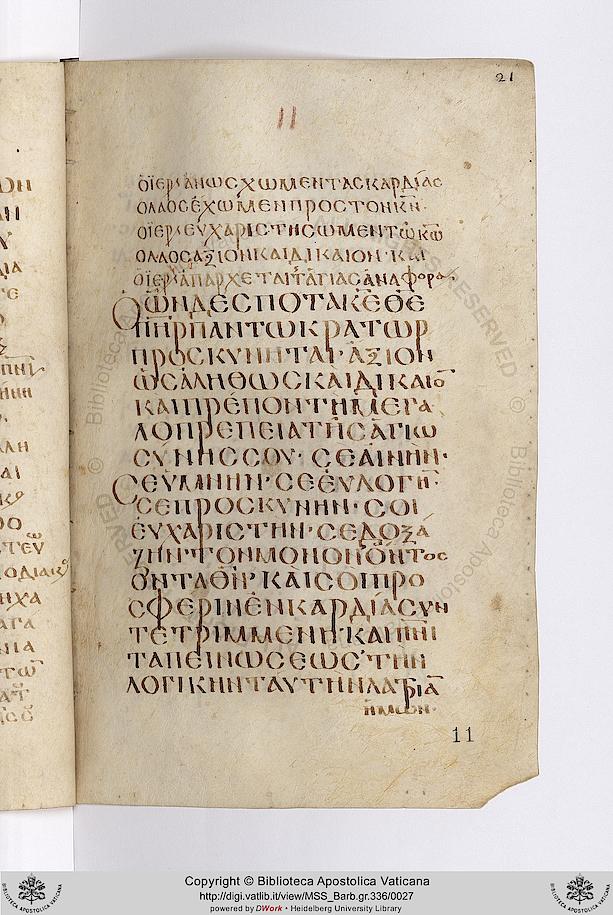 21
11
ὁ ἱερ ἄνω σχῶμεν τὰς καρδίας
ὁ λαὸς ἔχωμεν πρὸς τὸν κν
ὁ ἱερ εὐχαριστήσωμεν τῶ κω
ὁ λαὸς ἄξιον καὶ δίκαιον και
ὁ ἱερ ἀπάρχεται τ ἁγίας ἀναφορας
Ὁ ὢν δέσποτα κε θε
πηρ παντωκράτωρ
προσκυνηταὶ· ἄξιον
ὡς ἀληθῶς καὶ δίκαιο
καὶ πρέπον τῆ μεγα
λοπρεπεία τῆς ἁγιω
σύνης σου· σὲ αἰνῆν·
σε ὑμνῆν· σὲ εὐλογῆ
σε προσκυνῆν· σοὶ
εὐχαριστῆν· σε δοξά
ζην τὸν μόνον ὄντος
ὄντα θν· καὶ σοὶ προ
σφέριν ἐν καρδία συν
τετριμμένη· καὶ πνι
ταπεινώσεως τὴν
λογικὴν ταύτην λατρία
ἡμῶν·
11
Copyright © Biblioteca Apostolica Vaticana
http://digi.vatlib.it/view/MSS_Barb.gr.336/0027
powered by DWork • Heidelberg University Library